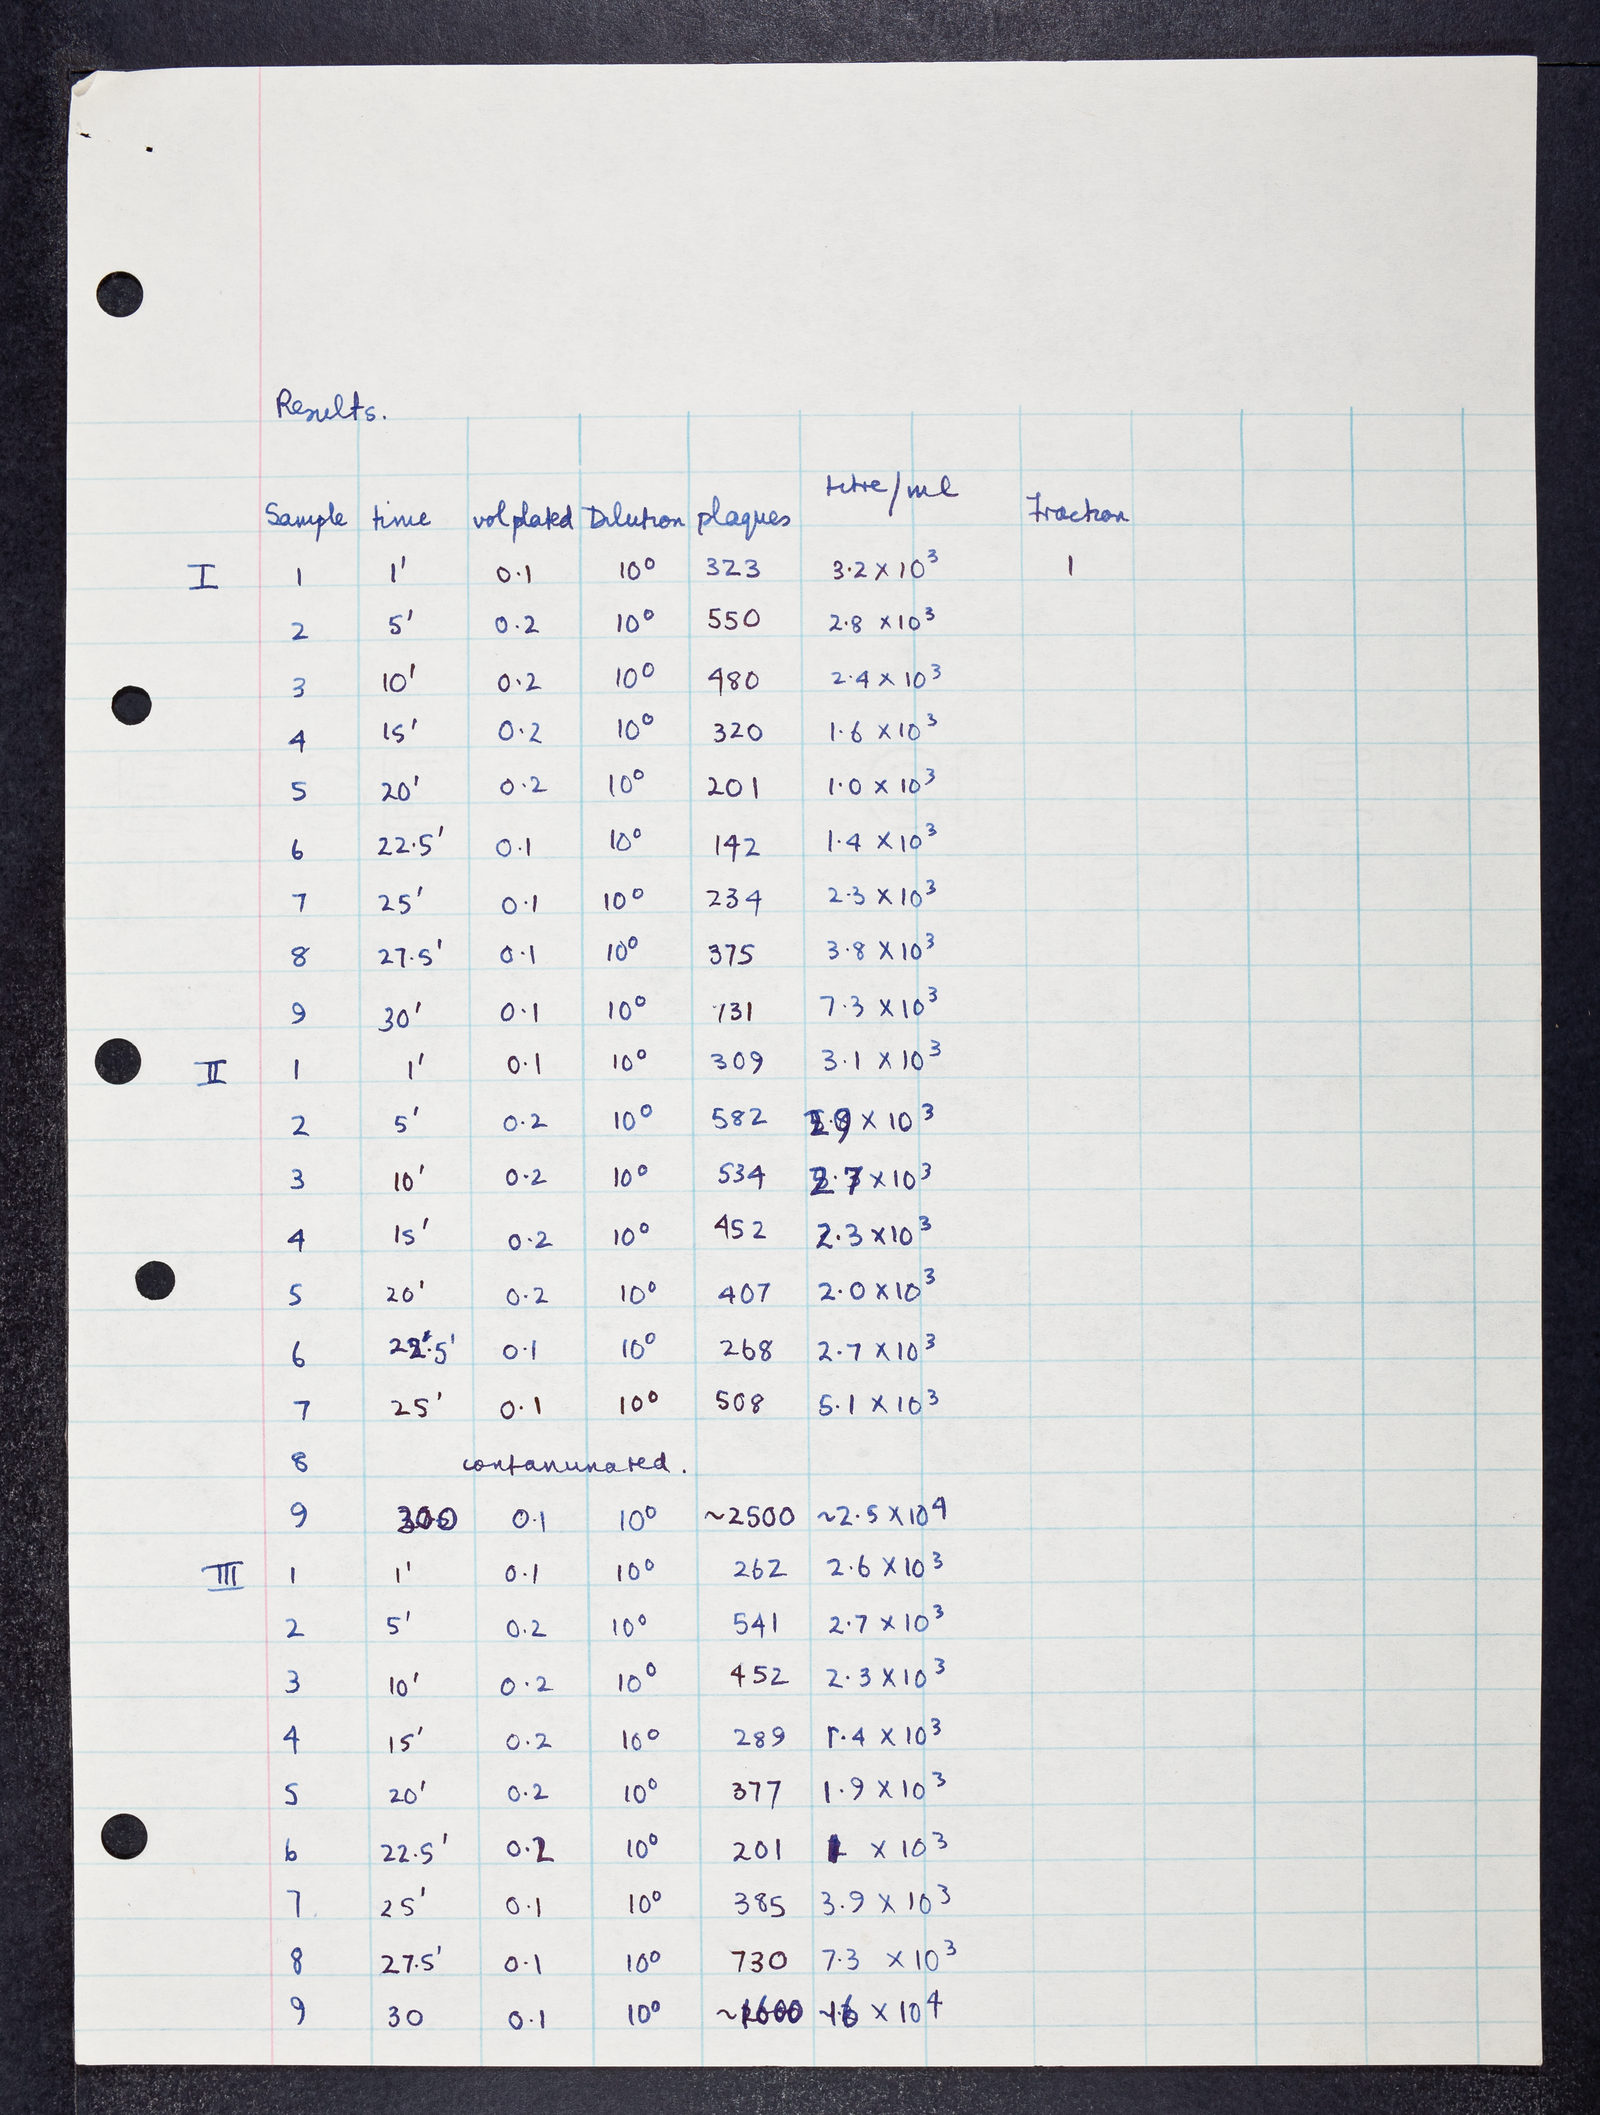 Results.
Sample time vol plated Dilution plaques titre/ml Fraction
I 1 1' 0.1 10⁰ 323 3.2 × 10³ 1
2 5' 0.2 10⁰ 550 2.8 × 10³
3 10' 0.2 10⁰ 480 2.4 × 10³
4 15' 0.2 10⁰ 320 1.6 × 10³
5 20' 0.2 10⁰ 201 1.0 × 10³
6 22.5' 0.1 10⁰ 142 1.4 × 10³
7 25' 0.1 10⁰ 234 2.3 × 10³
8 27.5' 0.1 10⁰ 375 3.8 × 10³
9 30' 0.1 10⁰ 731 7.3 × 10³
II 1 1' 0.1 10⁰ 309 3.1 × 10³
2 5' 0.2 10⁰ 582 2.9 × 10³
3 10' 0.2 10⁰ 534 2.7 × 10³
4 15' 0.2 10⁰ 452 2.3 × 10³
5 20' 0.2 10⁰ 407 2.0 × 10³
6 22.5' 0.1 10⁰ 268 2.7 × 10³
7 25' 0.1 10⁰ 508 5.1 × 10³
8 contaminated.
9 0.1 10⁰ ~2500 ~2.5 × 10⁴
III 1 1' 0.1 10⁰ 262 2.6 × 10³
2 5' 0.2 10⁰ 541 2.7 × 10³
3 10' 0.2 10⁰ 452 2.3 × 10³
4 15' 0.2 10⁰ 289 1.4 × 10³
5 20' 0.2 10⁰ 377 1.9 × 10³
6 22.5' 0.2 10⁰ 201 1 × 10³
7 25' 0.1 10⁰ 385 3.9 × 10³
8 27.5' 0.1 10⁰ 730 7.3 × 10³
9 30 0.1 10⁰ ~1600 ~1.6 × 10⁴